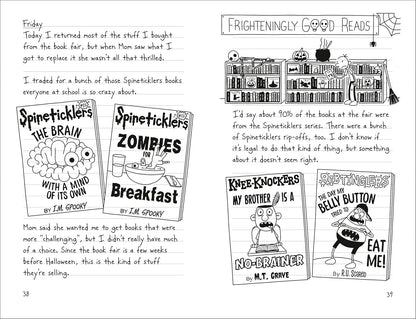 Friday
Today I returned most of the stuff I bought
from the book fair, but when Mom saw what I
got to replace it she wasn't all that thrilled.
I traded for a bunch of those Spineticklers books
everyone at school is so crazy about.
Spineticklers
THE BRAIN
WITH A MIND
OF ITS OWN
BY I.M. SPOOKY
Spineticklers
ZOMBIES
FOR
Breakfast
BY I.M. SPOOKY
Mom said she wanted me to get books that were
more "challenging", but I didn't really have much
of a choice. Since the book fair is a few weeks
before Halloween, this is the kind of stuff
they're selling.
38
FRIGHTENINGLY GOOD READS
I'd say about 90% of the books at the fair were
from the Spineticklers series. There were a bunch
of Spineticklers rip-offs, too. I don't know if
it's legal to do that kind of thing, but something
about it doesn't seem right.
KNEE-KNOCKERS
MY BROTHER IS A
NO-BRAINER
BY M.T. GRAVE
THE DAY MY
BELLY BUTTON
TRIED TO
EAT
ME!
BY R.U. SCARED
39